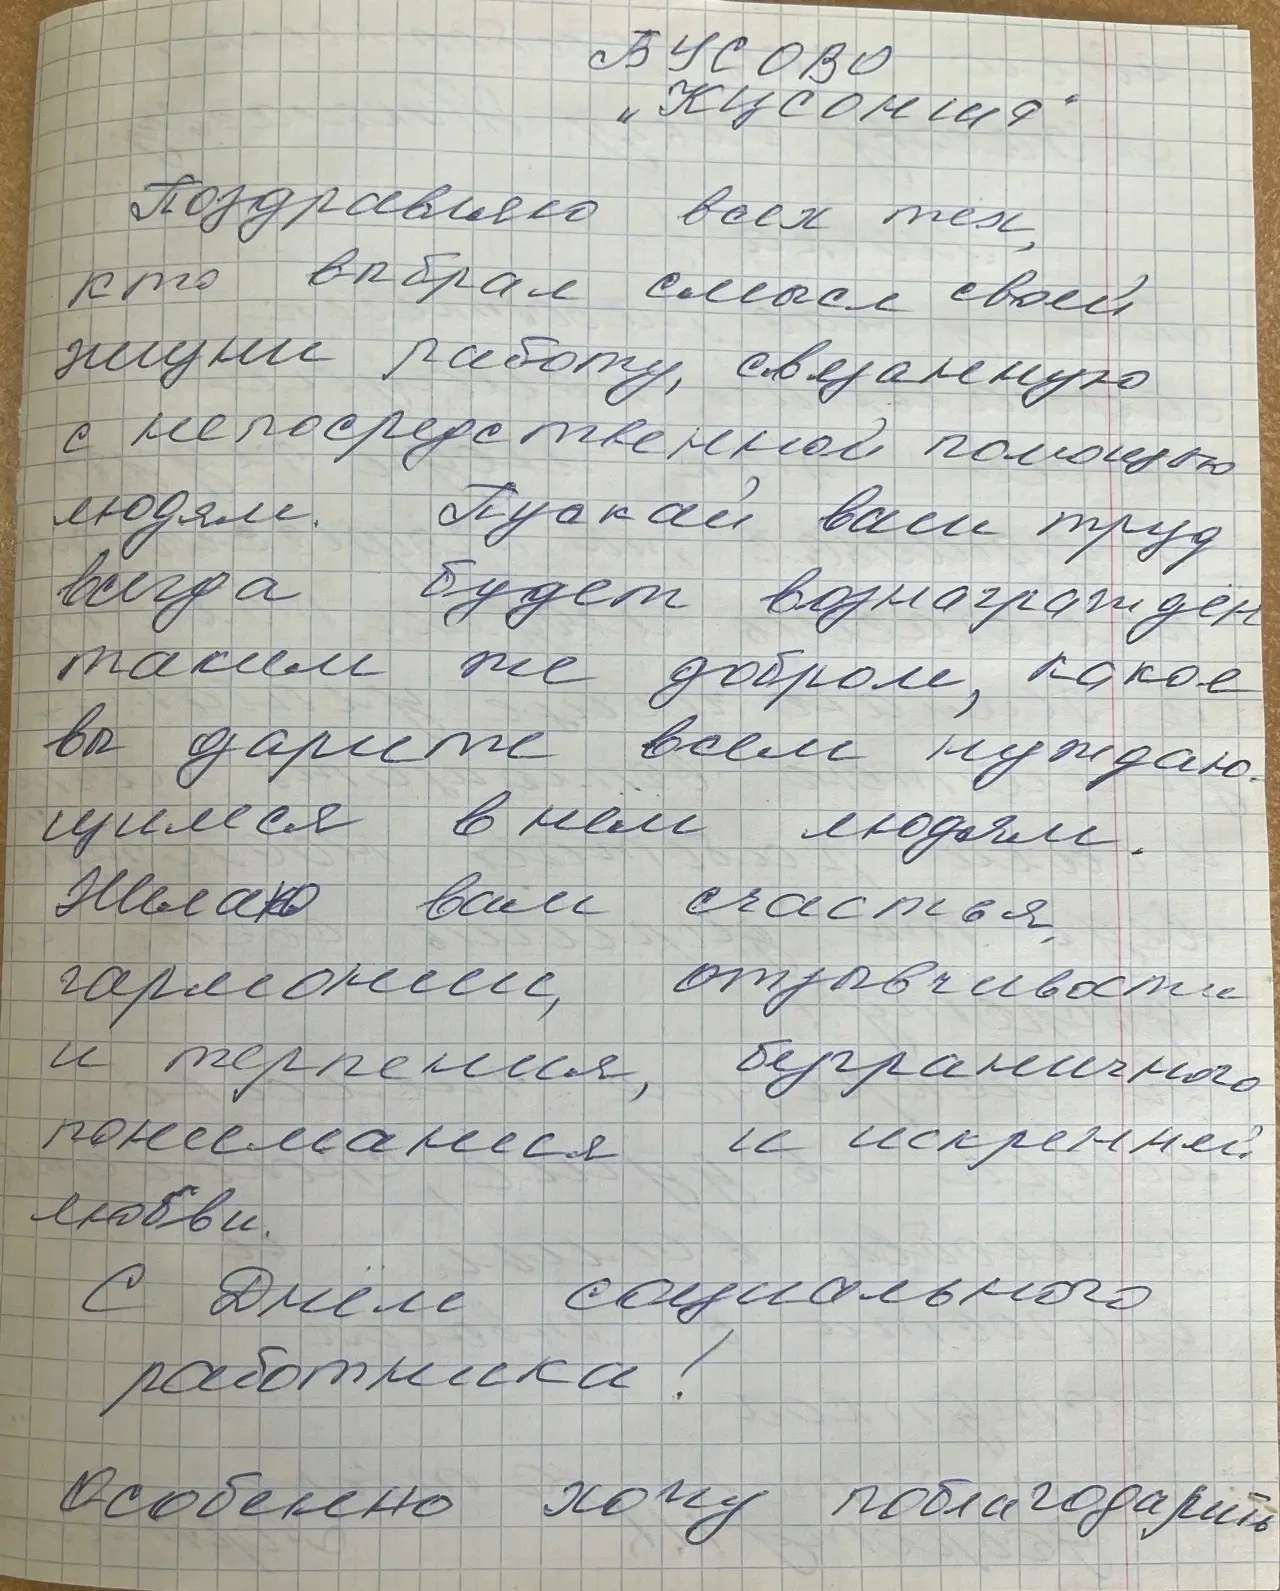 БУСОВО
"Кусония"
Поздравляю всех тех,
кто выбрал смысл своей
жизни работу, связанную
с непосредственной помощью
людям. Пускай ваш труд
всегда будет вознаграждён
таким же добром, какое
вы дарите всем нуждаю-
щимся в нем людям.
Желаю вам счастья,
гармонии, отзывчивости
и терпения, безграничного
понимания и искренней
любви.
С Днём социального
работника!
Особенно хочу поблагодарить